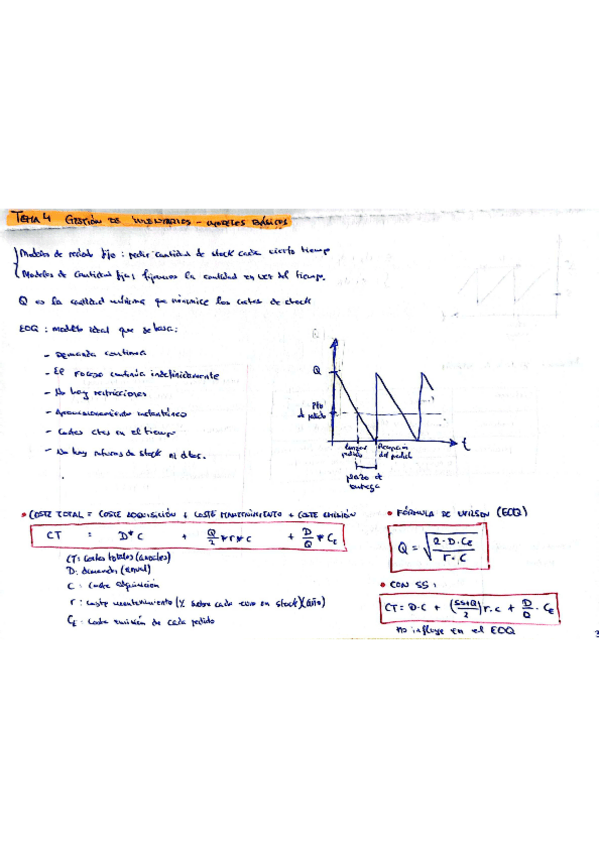 TEMA 4 GESTIÓN DE INVENTARIOS - MODELOS BÁSICOS
Modelos de período fijo: pedir cantidad de stock cada cierto tiempo
Modelos de cantidad fija: fijamos la cantidad en vez del tiempo.
Q es la cantidad óptima que minimice los costes de stock
EOQ: modelo ideal que se basa:
- Demanda continua
- El proceso continúa indefinidamente
- No hay restricciones
- Aprovisionamiento instantáneo
- Costes ctes en el tiempo
- No hay roturas de stock ni dtos.
Q
Pto
d pedido
t
lanzar pedido
Recepción del pedido
plazo d entrega
• COSTE TOTAL = COSTE ADQUISICIÓN + COSTE MANTENIMIENTO + COSTE EMISIÓN
CT = D*C + Q/2 * r * c + D/Q * CE
CT: Costes totales (anuales)
D: demanda (anual)
C: Coste adquisición
r: coste mantenimiento (% sobre cada euro en stock) (año)
CE: Coste emisión de cada pedido
• FÓRMULA DE WILSON (EOQ)
Q = √(2·D·CE / r·C)
• CON SS:
CT = D·C + (SS+Q/2) r·c + D/Q · CE
no influye en el EOQ
3